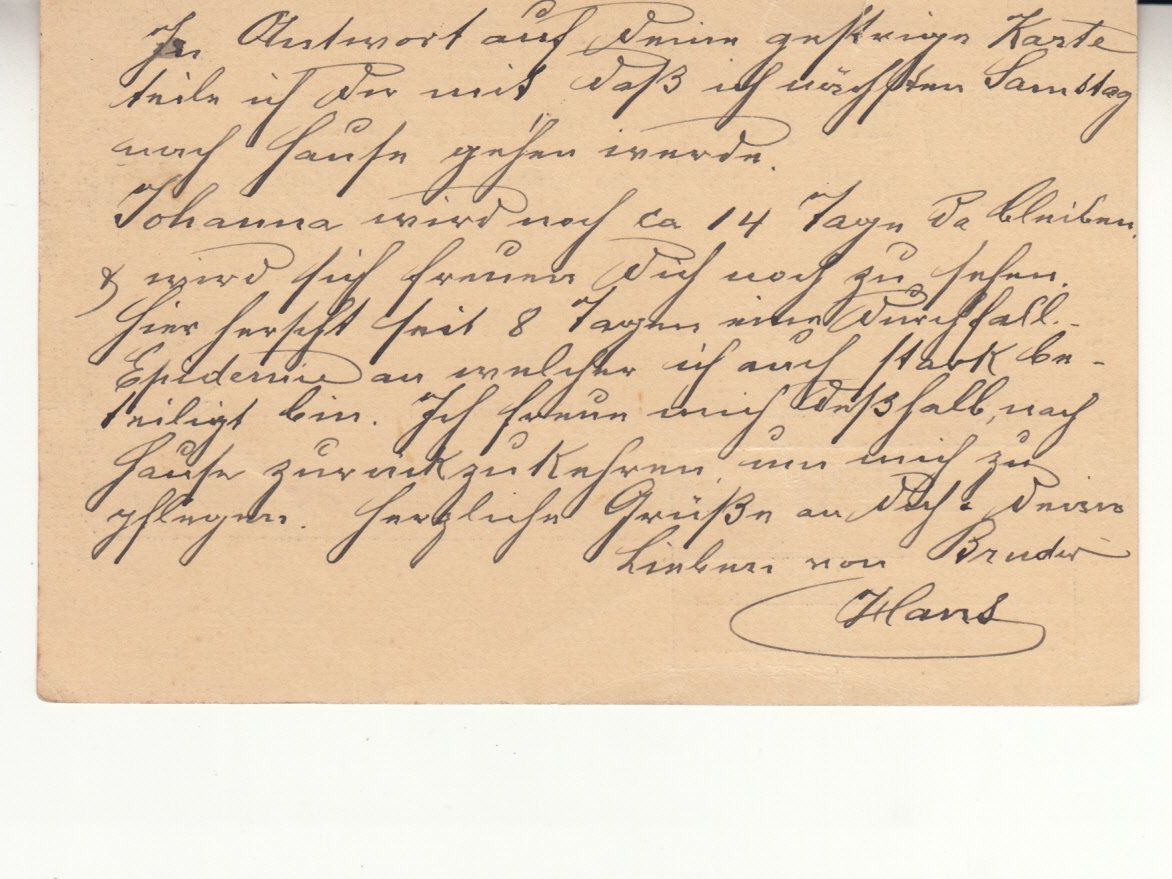 In Antwort auf Deine gestrige Karte
teile ich Dir mit daß ich nächsten Samstag
nach Hause gehen werde.
Johanna wird noch ca 14 Tage da bleiben.
& wird sich freuen Dich noch zu sehen.
Hier herscht seit 8 Tagen eine Durchfall-
Epidemie an welcher ich auch stark be-
teiligt bin. Ich freue mich deßhalb, nach
Hause zurückzukehren, um mich zu
pflegen. Herzliche Grüße an Dich & Deine
Lieben von Bruder
Hans